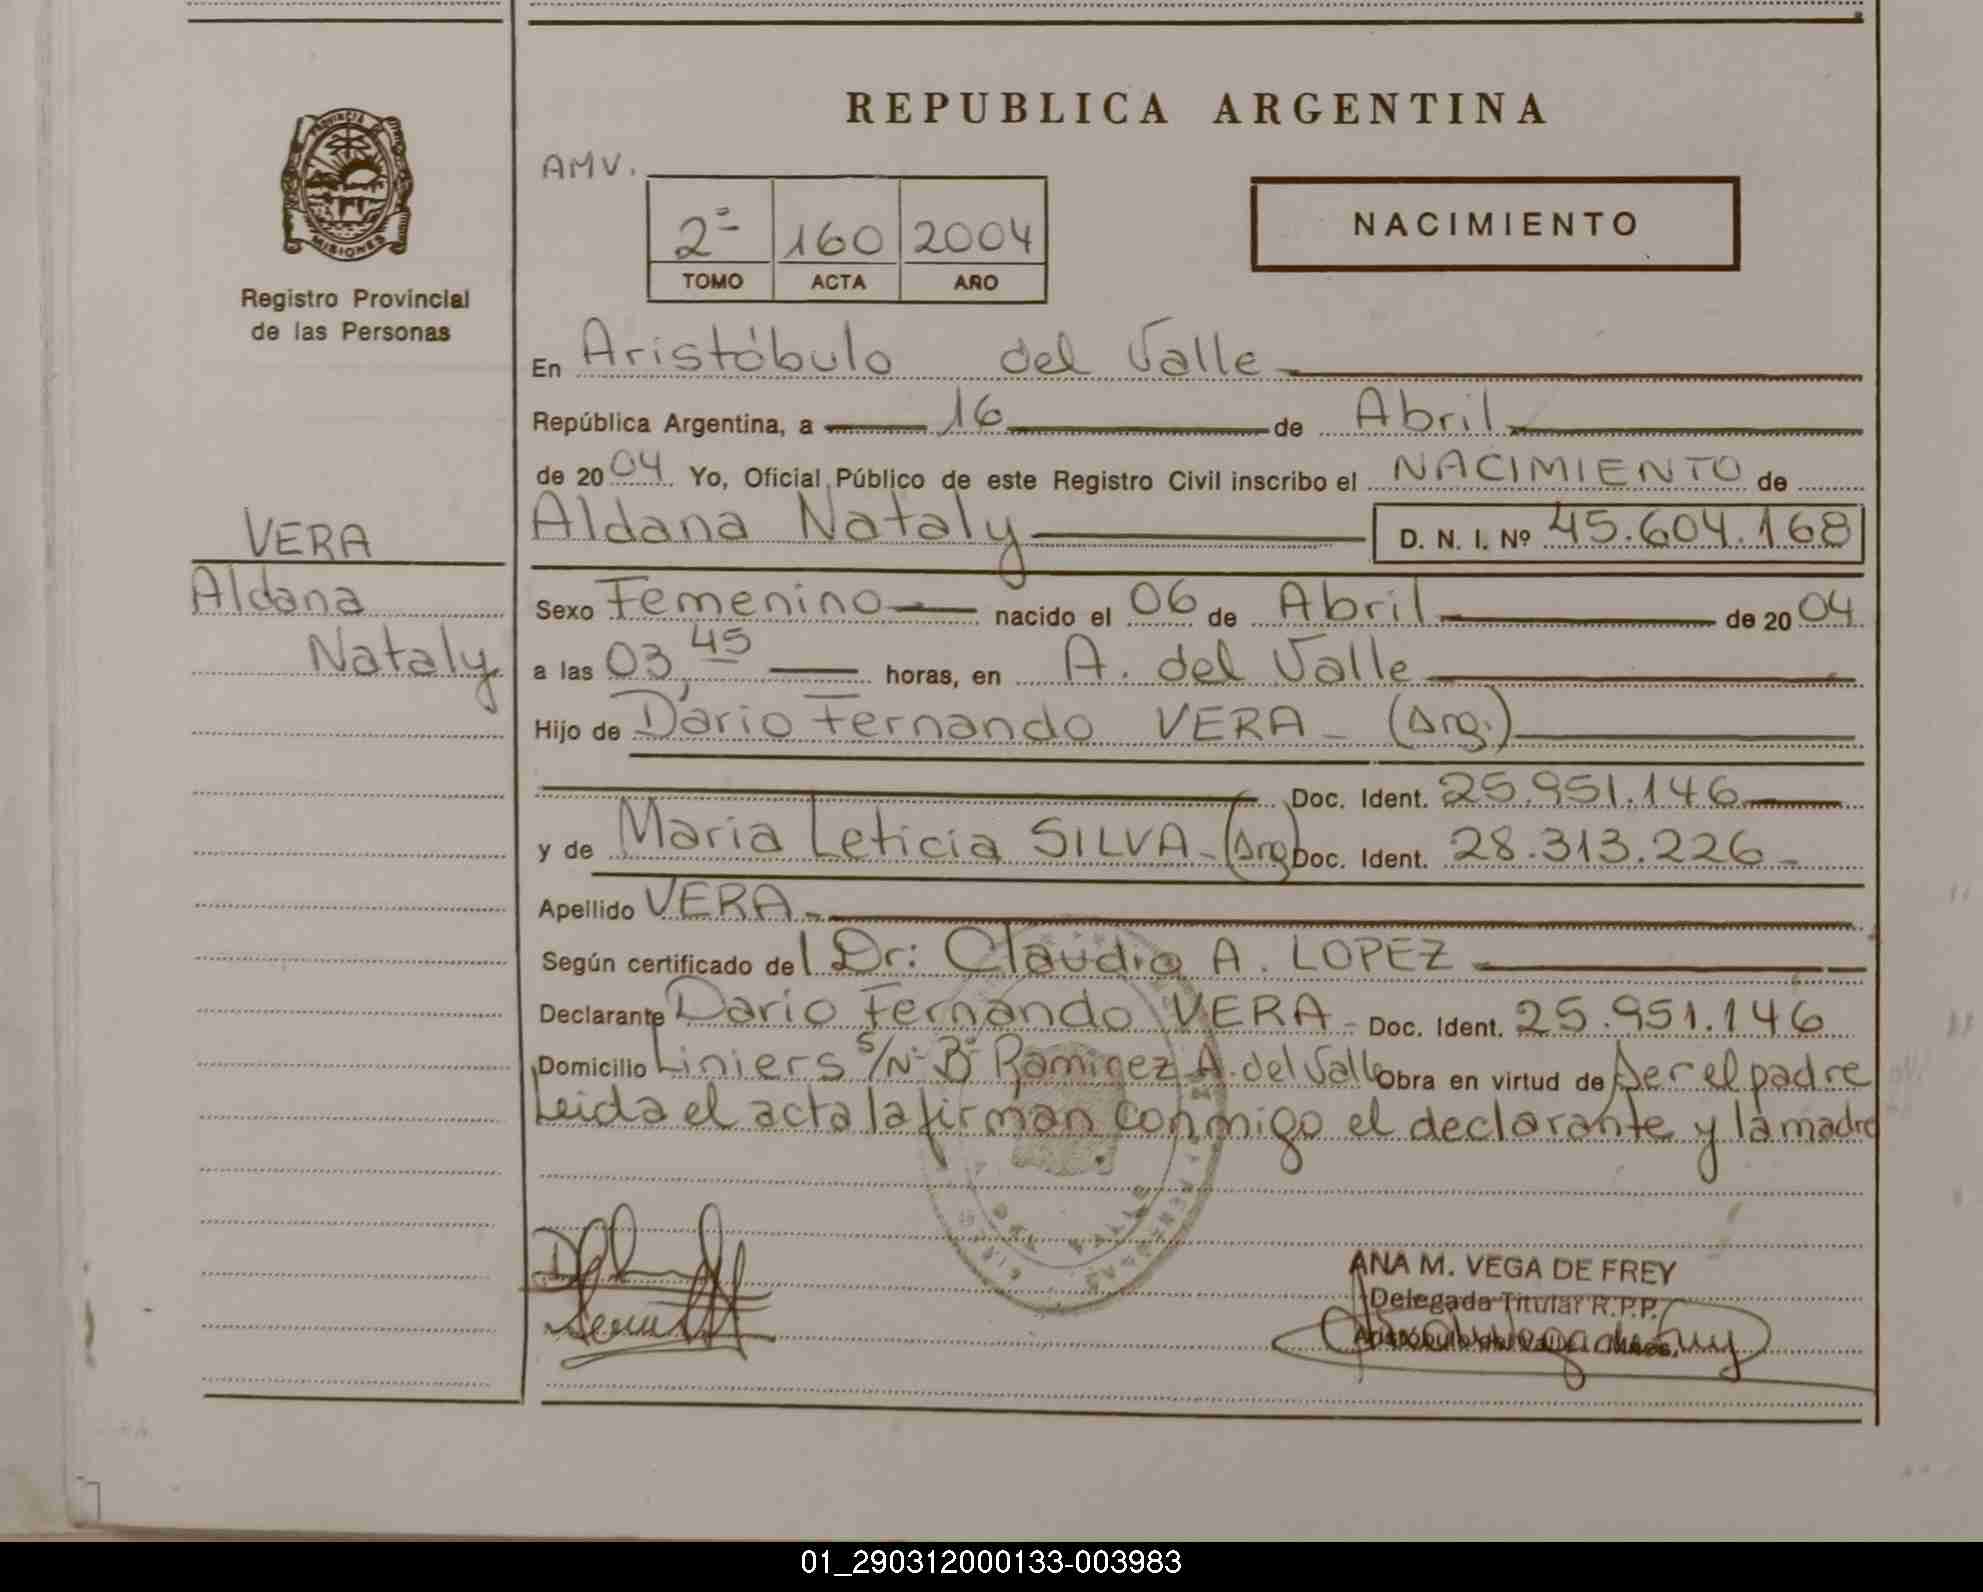 REPUBLICA ARGENTINA
PROVINCIA DE
MISIONES
Registro Provincial
de las Personas
AMV.
2º 160 2004
TOMO ACTA AÑO
NACIMIENTO
En Aristóbulo del Valle
República Argentina, a 16 de Abril
de 2004 Yo, Oficial Público de este Registro Civil inscribo el NACIMIENTO de
Aldana Nataly D. N. I. Nº 45.604.168
VERA
Aldana
Nataly
Sexo Femenino nacido el 06 de Abril de 2004
a las 03,45 horas, en A. del Valle
Hijo de Dario Fernando VERA - (Arg.)
Doc. Ident. 25.951.146
y de Maria Leticia SILVA - (Arg) Doc. Ident. 28.313.226 -
Apellido VERA -
Según certificado del Dr: Claudio A. LOPEZ
Declarante Dario Fernando VERA - Doc. Ident. 25.951.146
Domicilio Liniers S/Nº Bº Ramirez A. del Valle Obra en virtud de Ser el padre
Leida el acta la firman conmigo el declarante y la madre
ANA M. VEGA DE FREY
Delegada Titular R.P.P.
01_290312000133-003983